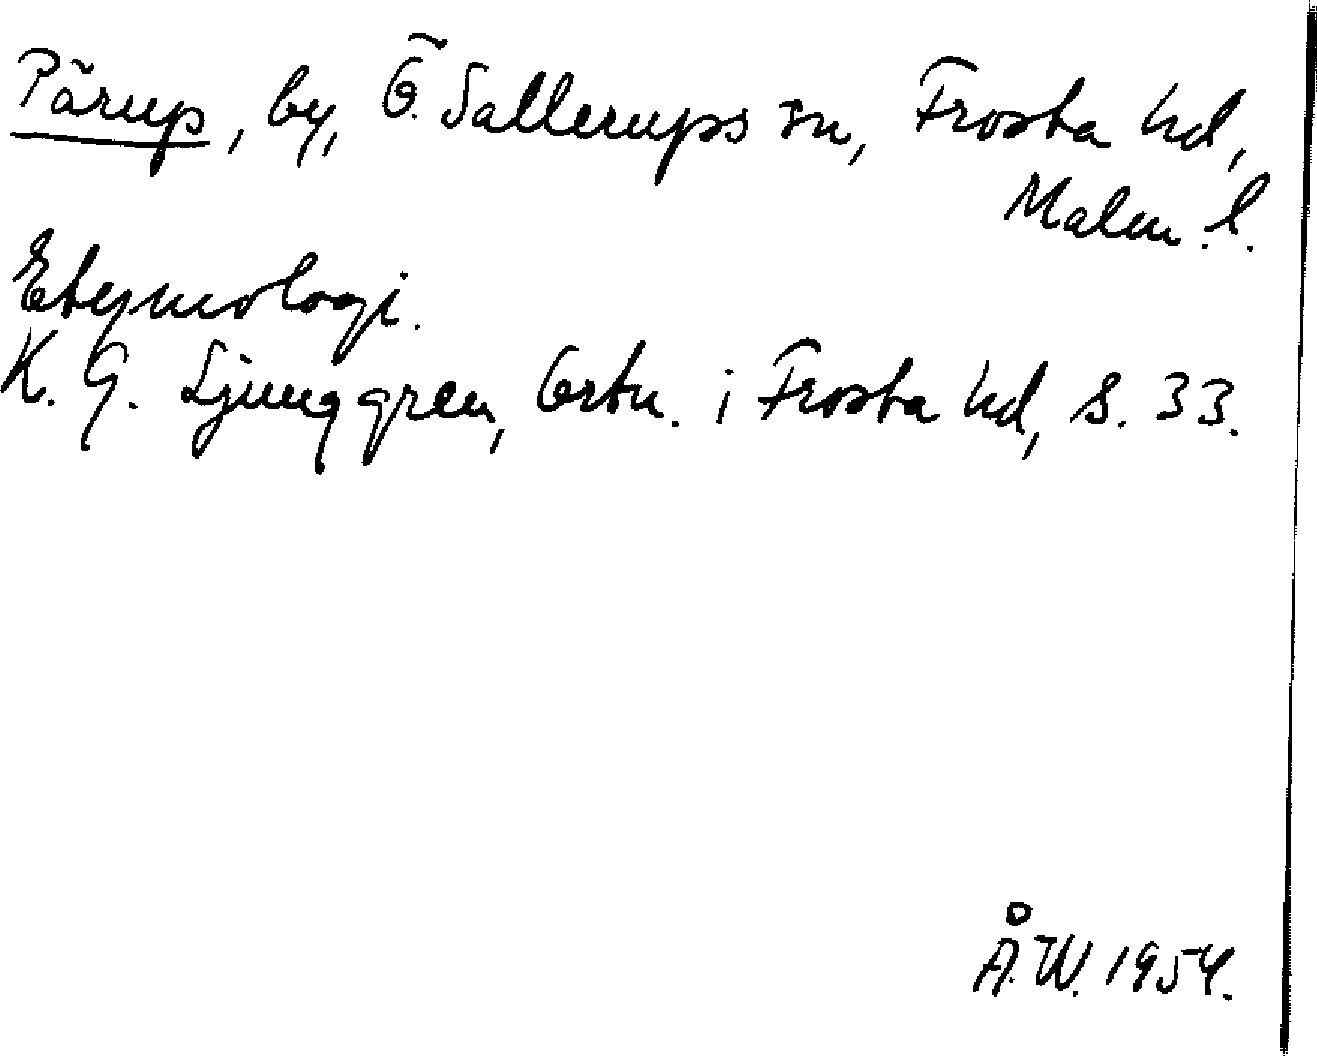 Pärup, by, Ö. Sallerups sn, Frosta hd,
Malm. l.
Etymologi.
K. G. Ljunggren, Ortn. i Frosta hd, s. 33.
Å. W. 1954.